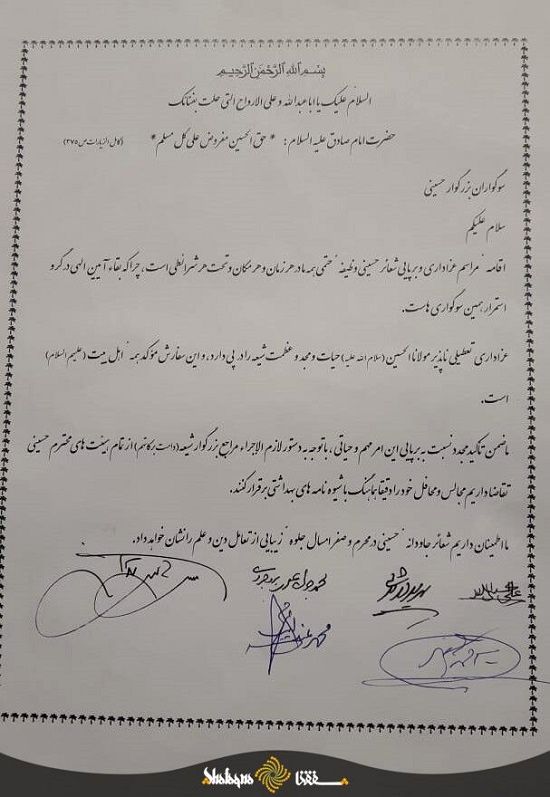 بسم الله الرحمن الرحیم
السلام علیک یا ابا عبدالله و علی الارواح التی حلت بفنائک
حضرت امام صادق علیه السلام: * حق الحسین مفروض علی کل مسلم * (کامل الزیارات ص ۳۷۵)
سوگواران بزرگوار حسینی
سلام علیکم
اقامه مراسم عزاداری و برپایی شعائر حسینی وظیفه حتمی همه ما در هر زمان و هر مکان و تحت هر شرائطی است، چرا که بقاء آیین الهی در گرو
استمرار همین سوگواری هاست.
عزاداری تعطیلی ناپذیر مولانا الحسین (سلام الله علیه) حیات و مجد و عظمت شیعه را در پی دارد، و این سفارش مؤکد همه اهل بیت (علیهم السلام)
است.
ما ضمن تاکید مجدد نسبت به برپایی این امر مهم و حیاتی، با توجه به دستور لازم الاجراء مراجع بزرگوار شیعه (دامت برکاتهم) از تمام هیئت های محترم حسینی
تقاضا داریم مجالس و محافل خود را دقیقا هماهنگ با شیوه نامه های بهداشتی برقرار کنند.
ما اطمینان داریم شعائر جاودانه حسینی در محرم و صفر امسال جلوه زیبایی از تعامل دین و علم را نشان خواهد داد.
شفقنا